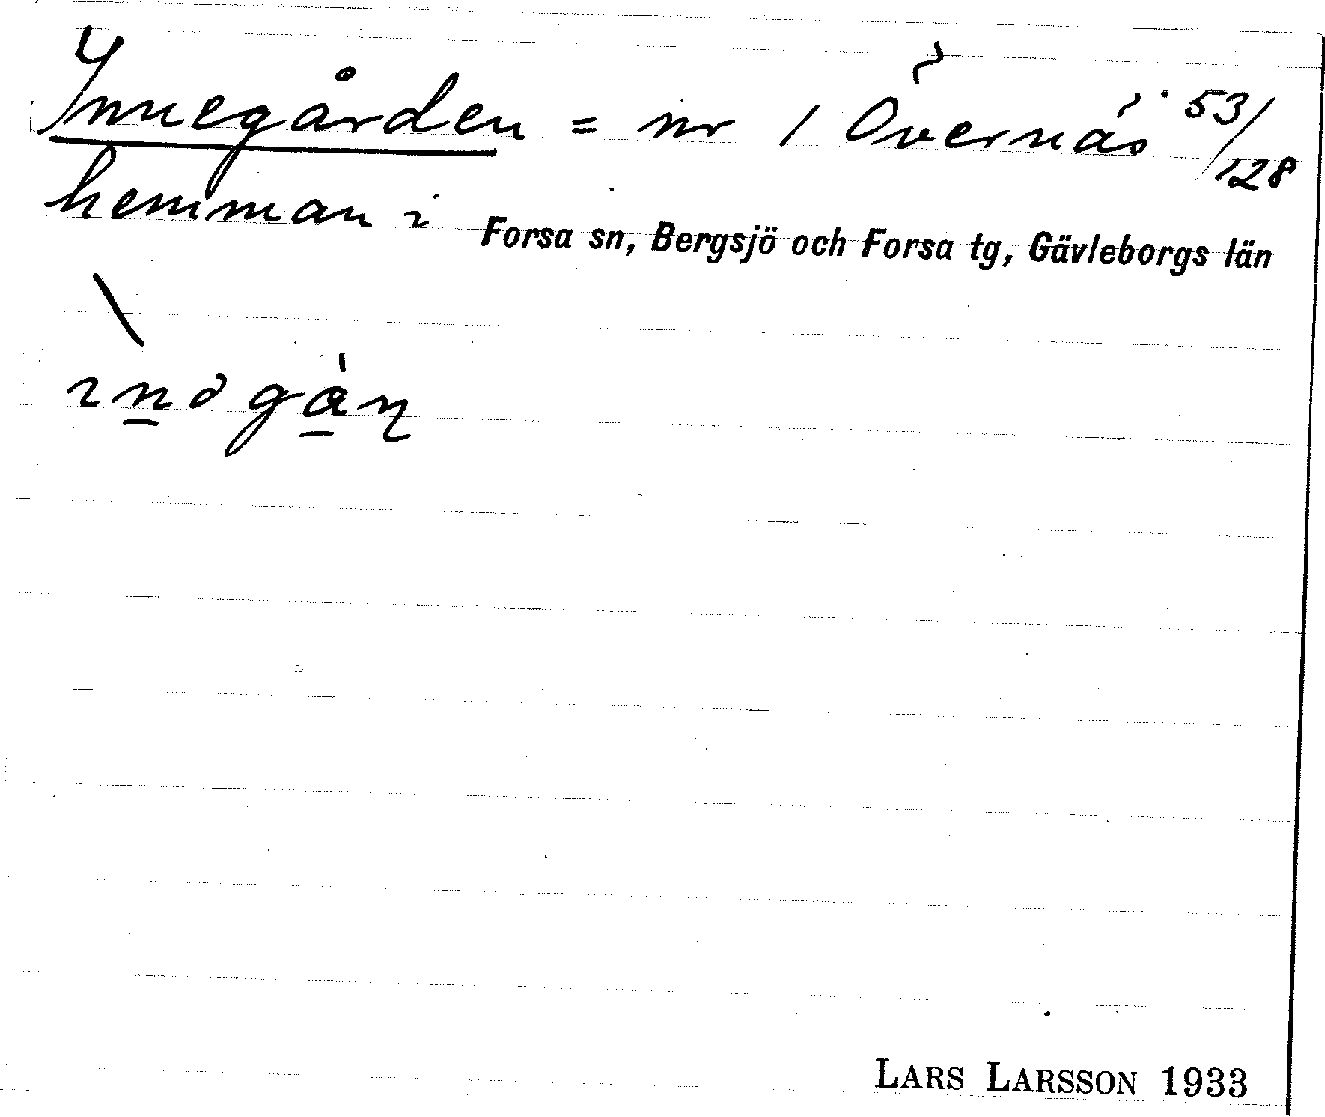 Innegården = nr 1 Övernäs 53/128
hemman i Forsa sn, Bergsjö och Forsa tg, Gävleborgs län
LARS LARSSON 1933